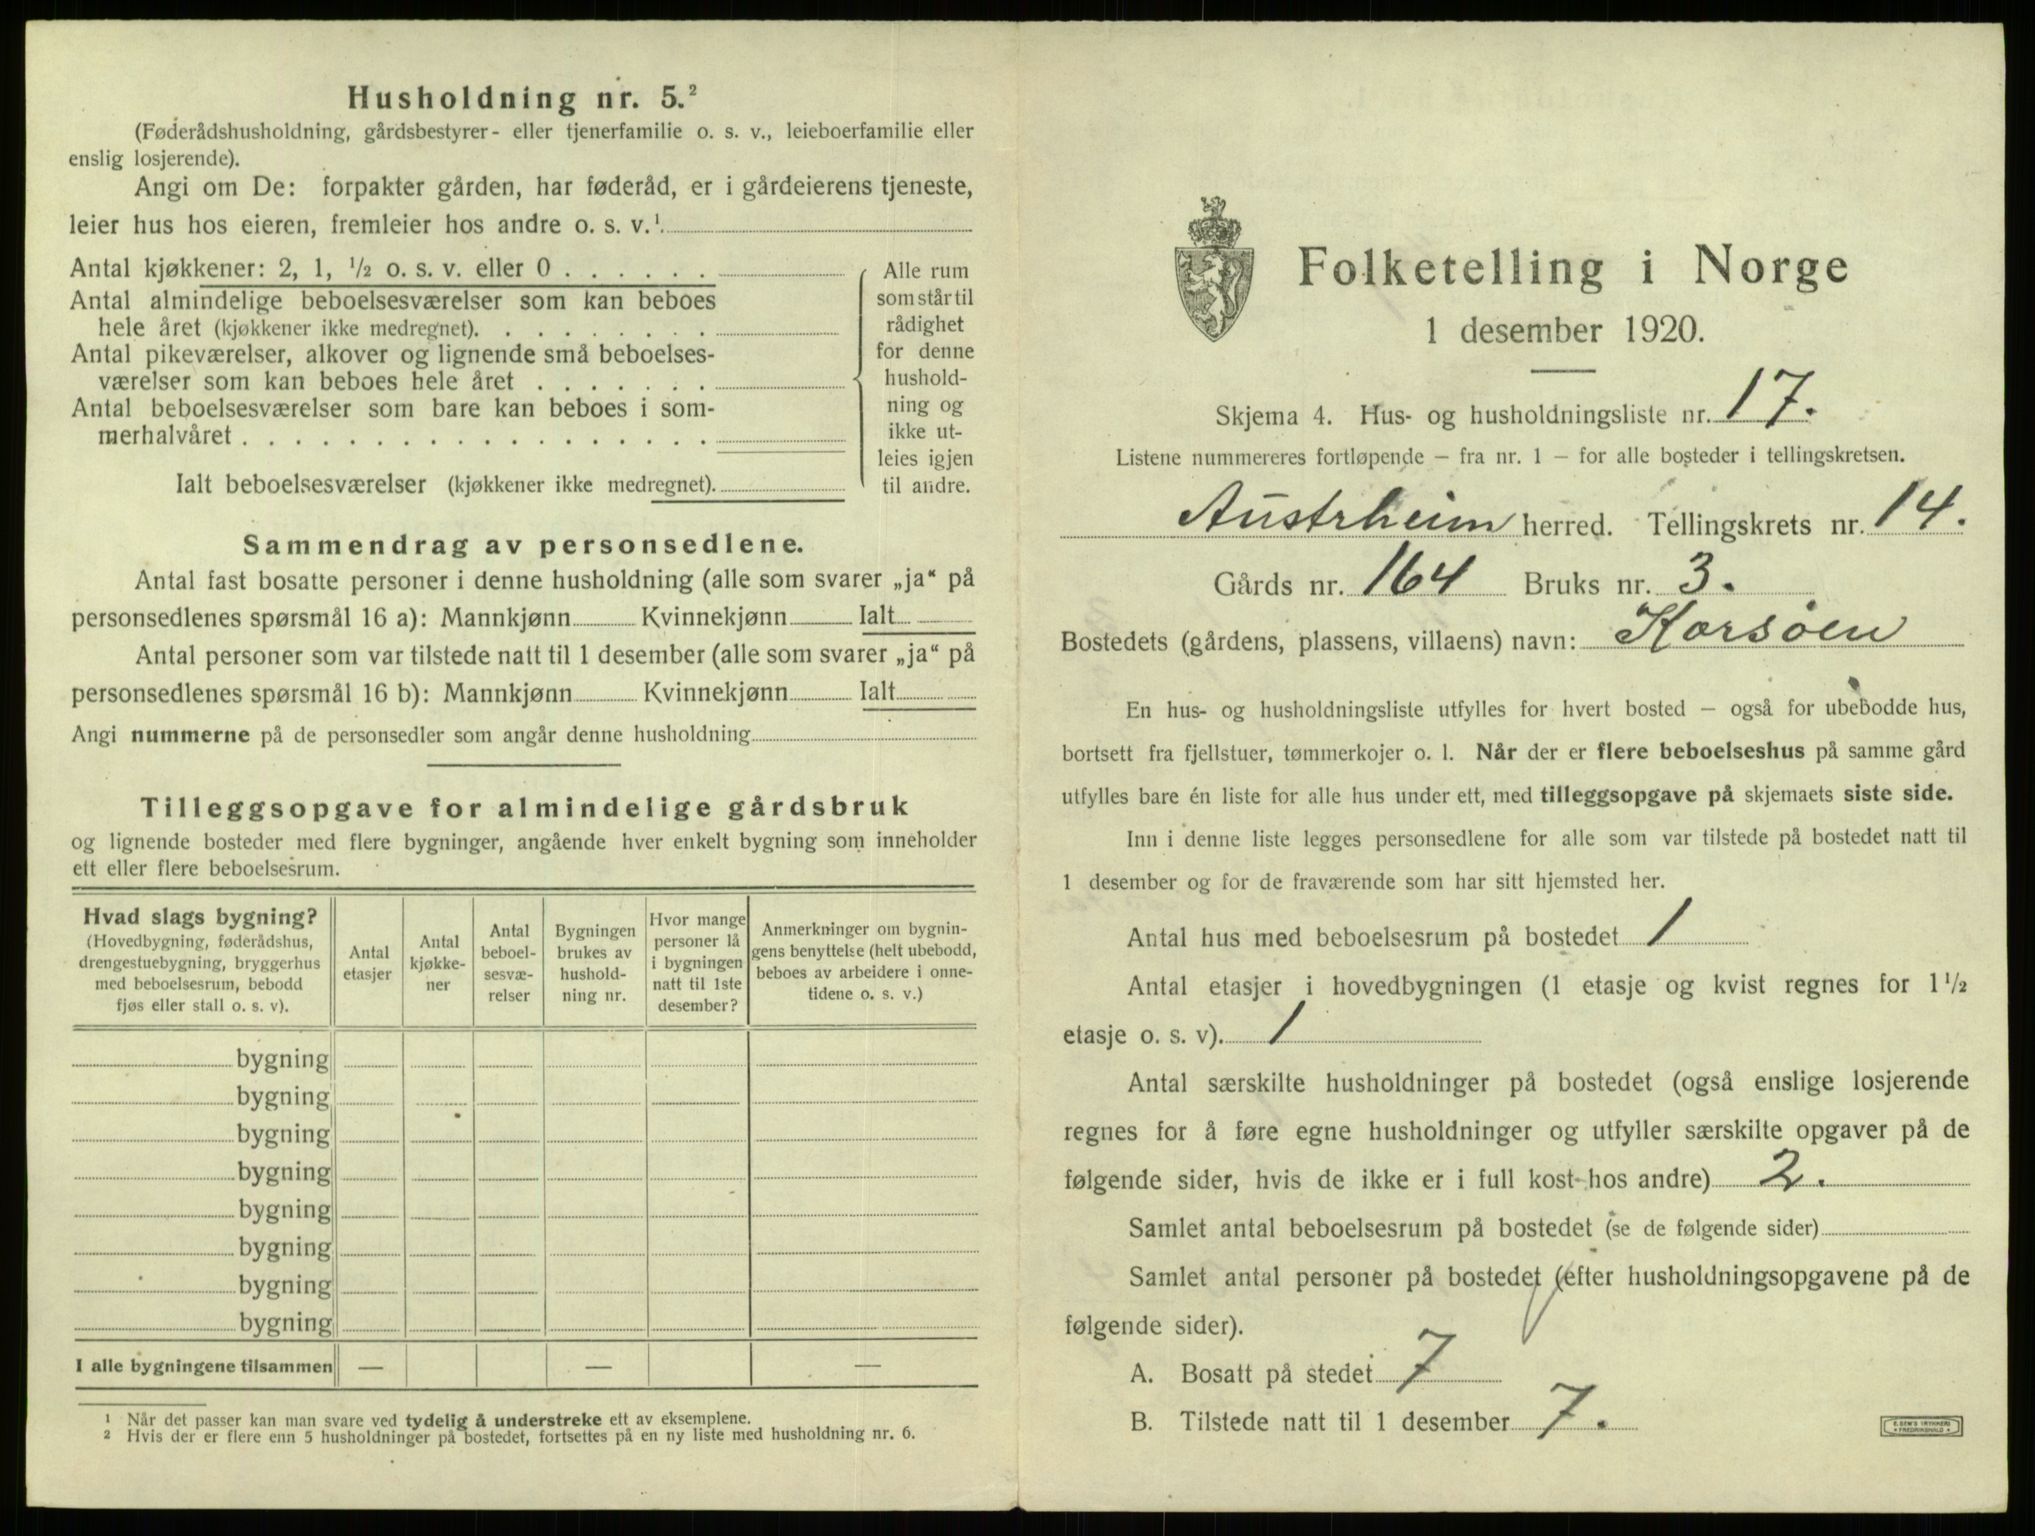 Husholdning nr. 5.²
(Føderådshusholdning, gårdsbestyrer- eller tjenerfamilie o. s. v., leieboerfamilie eller
enslig losjerende).
Angi om De: forpakter gården, har føderåd, er i gårdeierens tjeneste,
leier hus hos eieren, fremleier hos andre o. s. v.¹
Antal kjøkkener: 2, 1, ½ o. s. v. eller 0 . . . . . .
Antal almindelige beboelsesværelser som kan beboes
hele året (kjøkkener ikke medregnet). . . . . . . . .
Antal pikeværelser, alkover og lignende små beboelses-
værelser som kan beboes hele året . . . . . . .
Antal beboelsesværelser som bare kan beboes i som-
merhalvåret . . . . . . . . . . . . . . . . . .
Alle rum
som står til
rådighet
for denne
hushold-
ning og
ikke ut-
leies igjen
til andre.
Ialt beboelsesværelser (kjøkkener ikke medregnet).
Sammendrag av personsedlene.
Antal fast bosatte personer i denne husholdning (alle som svarer „ja“ på
personsedlenes spørsmål 16 a): Mannkjønn Kvinnekjønn Ialt
Antal personer som var tilstede natt til 1 desember (alle som svarer „ja“ på
personsedlenes spørsmål 16 b): Mannkjønn Kvinnekjønn Ialt
Angi nummerne på de personsedler som angår denne husholdning
Tilleggsopgave for almindelige gårdsbruk
og lignende bosteder med flere bygninger, angående hver enkelt bygning som inneholder
ett eller flere beboelsesrum.
Hvad slags bygning?
(Hovedbygning, føderådshus,
drengestuebygning, bryggerhus
med beboelsesrum, bebodd
fjøs eller stall o. s. v).
Antal
etasjer
Antal
kjøkke-
ner
Antal
beboel-
sesvæ-
relser
Bygningen
brukes av
hushold-
ning nr.
Hvor mange
personer lå
i bygningen
natt til 1ste
desember?
Anmerkninger om bygnin-
gens benyttelse (helt ubebodd,
beboes av arbeidere i onne-
tidene o. s. v.)
bygning
bygning
bygning
bygning
bygning
bygning
bygning
bygning
I alle bygningene tilsammen — — —
¹ Når det passer kan man svare ved tydelig å understreke ett av eksemplene.
² Hvis der er flere enn 5 husholdninger på bostedet, fortsettes på en ny liste med husholdning nr. 6.
Folketelling i Norge
1 desember 1920.
Skjema 4. Hus- og husholdningsliste nr. 17.
Listene nummereres fortløpende – fra nr. 1 – for alle bosteder i tellingskretsen.
Austrheim herred. Tellingskrets nr. 14.
Gårds nr. 164 Bruks nr. 3.
Bostedets (gårdens, plassens, villaens) navn: Korsøen
En hus- og husholdningsliste utfylles for hvert bosted – også for ubebodde hus,
bortsett fra fjellstuer, tømmerkojer o. l. Når der er flere beboelseshus på samme gård
utfylles bare én liste for alle hus under ett, med tilleggsopgave på skjemaets siste side.
Inn i denne liste legges personsedlene for alle som var tilstede på bostedet natt til
1 desember og for de fraværende som har sitt hjemsted her.
Antal hus med beboelsesrum på bostedet 1
Antal etasjer i hovedbygningen (1 etasje og kvist regnes for 1½
etasje o. s. v). 1
Antal særskilte husholdninger på bostedet (også enslige losjerende
regnes for å føre egne husholdninger og utfyller særskilte opgaver på de
følgende sider, hvis de ikke er i full kost hos andre) 2.
Samlet antal beboelsesrum på bostedet (se de følgende sider)
Samlet antal personer på bostedet (efter husholdningsopgavene på de
følgende sider).
A. Bosatt på stedet 7
B. Tilstede natt til 1 desember 7.